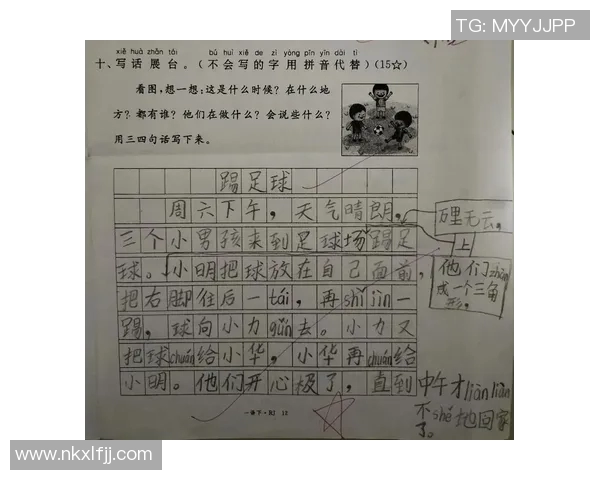 TG: MYYJJPP
xiě huà zhǎn tái bú huì xiě de zì yòng pīn yīn dài tì
十、写话展台。(不会写的字用拼音代替)(15☆)
看图,想一想:这是什么时候?在什么地
方?都有谁?他们在做什么?会说些什么?
用三四句话写下来。
踢足球
周六下午,天气晴朗,
万里无云,
三个小男孩来到足球场踢足
上
球。小明把球放在自己面前,
他们zhàn
成一个三角
形。
把右脚往后一tái,再shǐ jìn一
踢,球向小力gǔn去。小力又
把球chuán给小华,小华再chuán给
小明。他们开心极了,直到
中午才liàn liàn
不shě地回家
了。
一套下·RJ 12
www.nkxlfjj.com